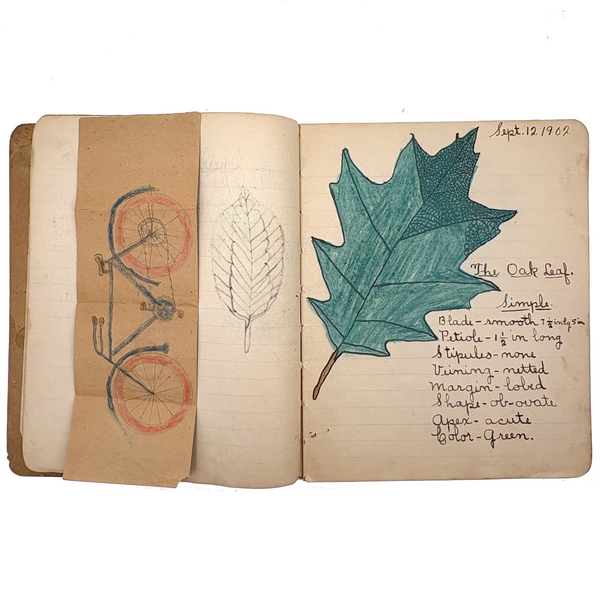 Sept. 12 1902
The Oak Leaf.
Simple.
Blade - smooth 7 ½ in lg 5 in
Petiole - 1 ½ in long
Stipules - none
Veining - netted
Margin - lobed
Shape - ob-ovate
Apex - acute
Color - Green.